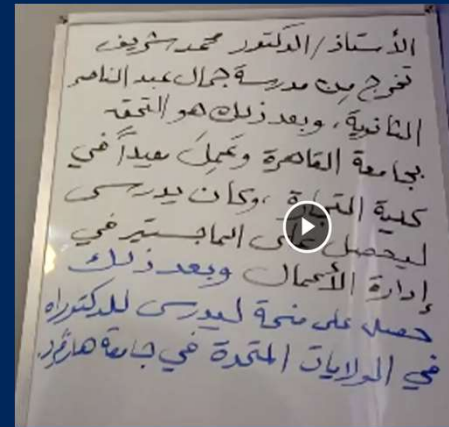 الأستاذ/الدكتور محمد شريف
تخرج من مدرسة جمال عبد الناصر
الثانوية، وبعد ذلك هو التحق
بجامعة القاهرة وعَمِلَ معيداً في
كلية التجارة، وكان يدرس
ليحصل على الماجستير في
إدارة الأعمال وبعد ذلك
حصل على منحة ليدرس للدكتوراه
في الولايات المتحدة في جامعة هارڤرد.